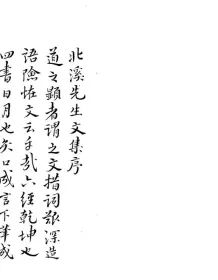 北溪先生文集序
道之顯者謂之文措詞艱深造
語險怪文云乎哉六經乾坤也
四書日月也矢口成言下筆成